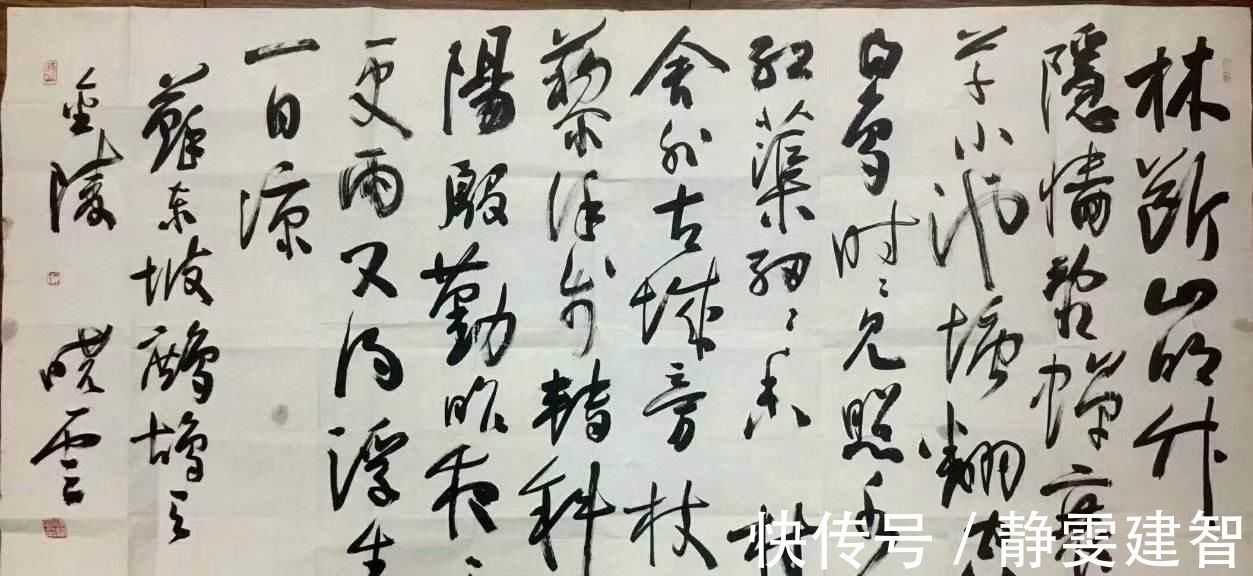 林断山明竹
隱墙乱蝉衰
草小池塘翻空
白鸟时〻见照水
红蕖细〻香村
舍外古城旁杖
藜徐步转斜
陽殷勤昨夜三
更雨又得浮生
一日凉
蘇东坡鹧鸪天
金陵 晓雲
快传号 / 静雯建智